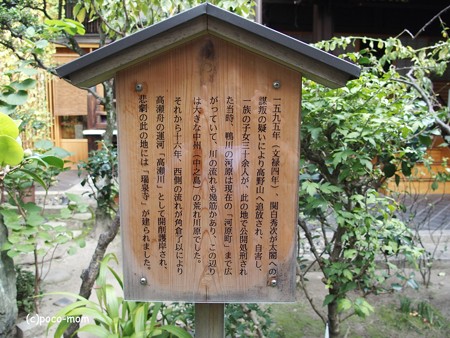 一五九五年（文禄四年）、関白秀次が太閤への
謀叛の疑いにより高野山へ追放され、自害し、
一族の子女三十余人が、此の地で公開処刑され
た当時、鴨川の河原は現在の「河原町」まで広
がっていて、川の流れも幾筋かあり、この辺り
は大きな中州（中之島）の荒れ川原でした。
それから十六年、西側の流れが角倉了以により
高瀬舟の運河「高瀬川」として開削護岸され、
悲劇の此の地には「瑞泉寺」が建られました。
(c)poco-mom